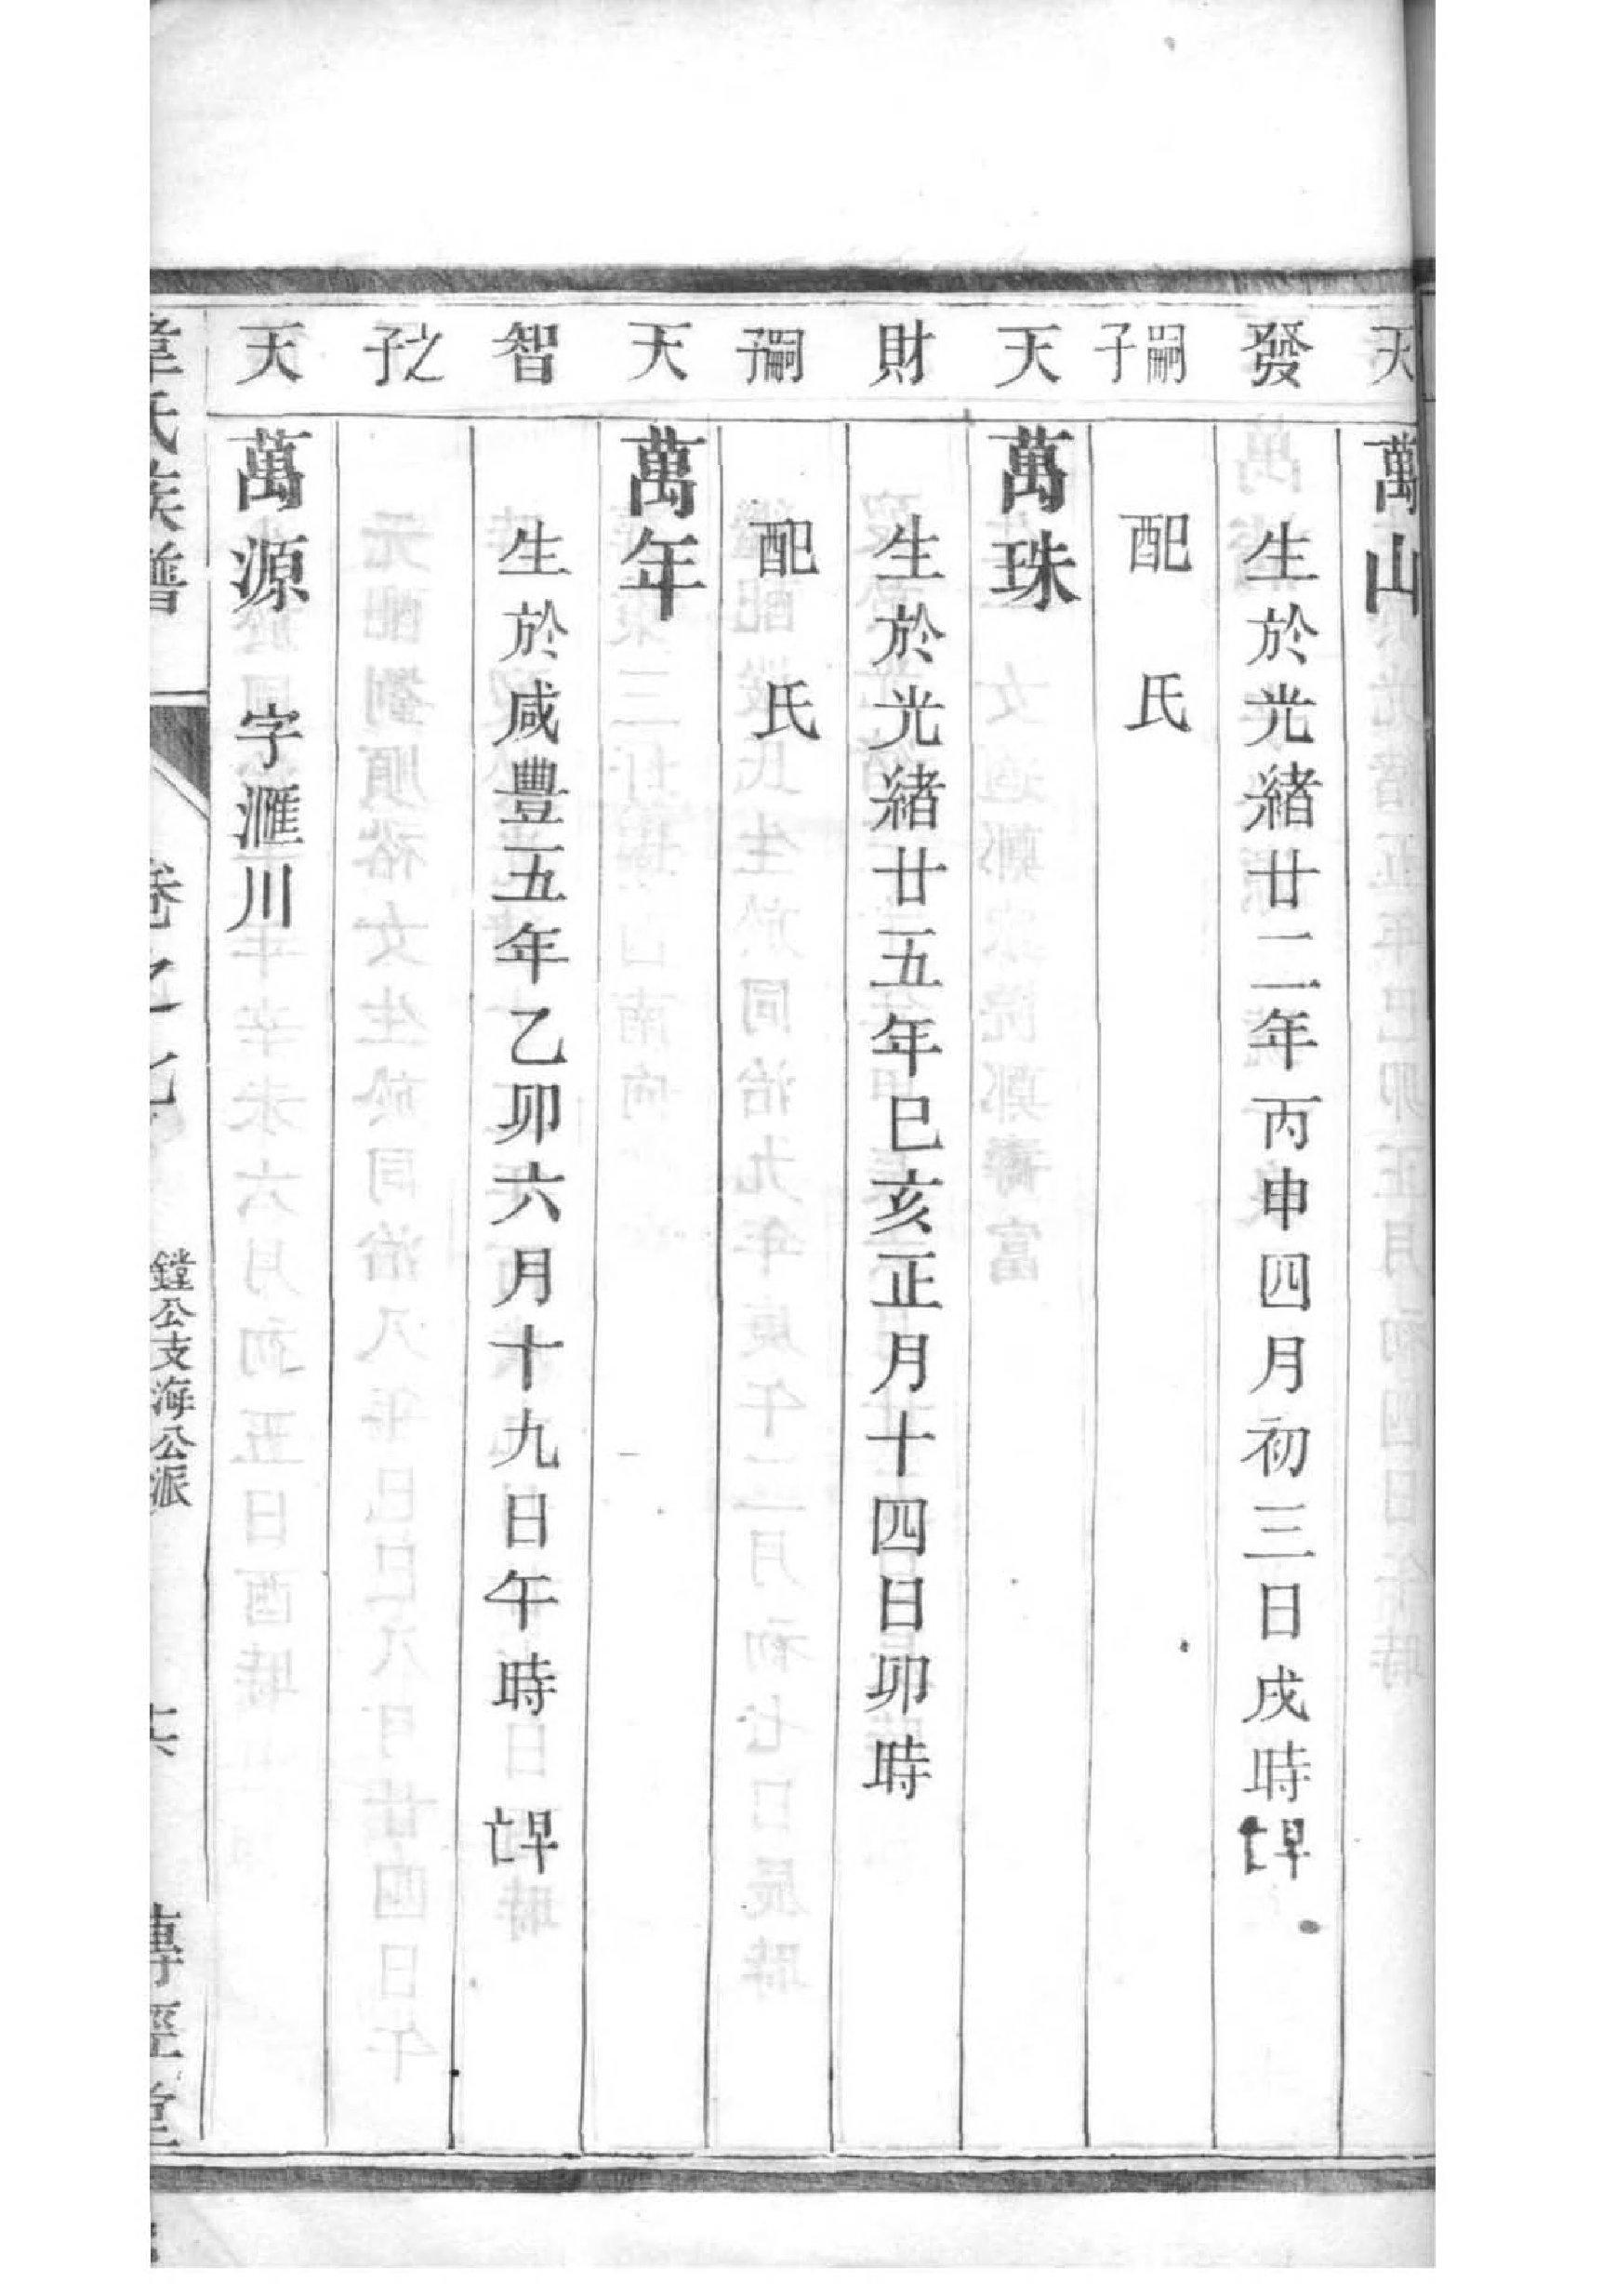 天 萬山
發 生於光緒廿二年丙申四月初三日戌時早亡
嗣子 配 氏
天 萬珠
財 生於光緒廿五年巳亥正月十四日卯時
嗣子 配 氏
天 萬年
智 生於咸豐五年乙卯六月十九日午時 早亡
之子
天 萬源 字滙川
氏族譜 卷之 鏜公支海公派 傳經堂